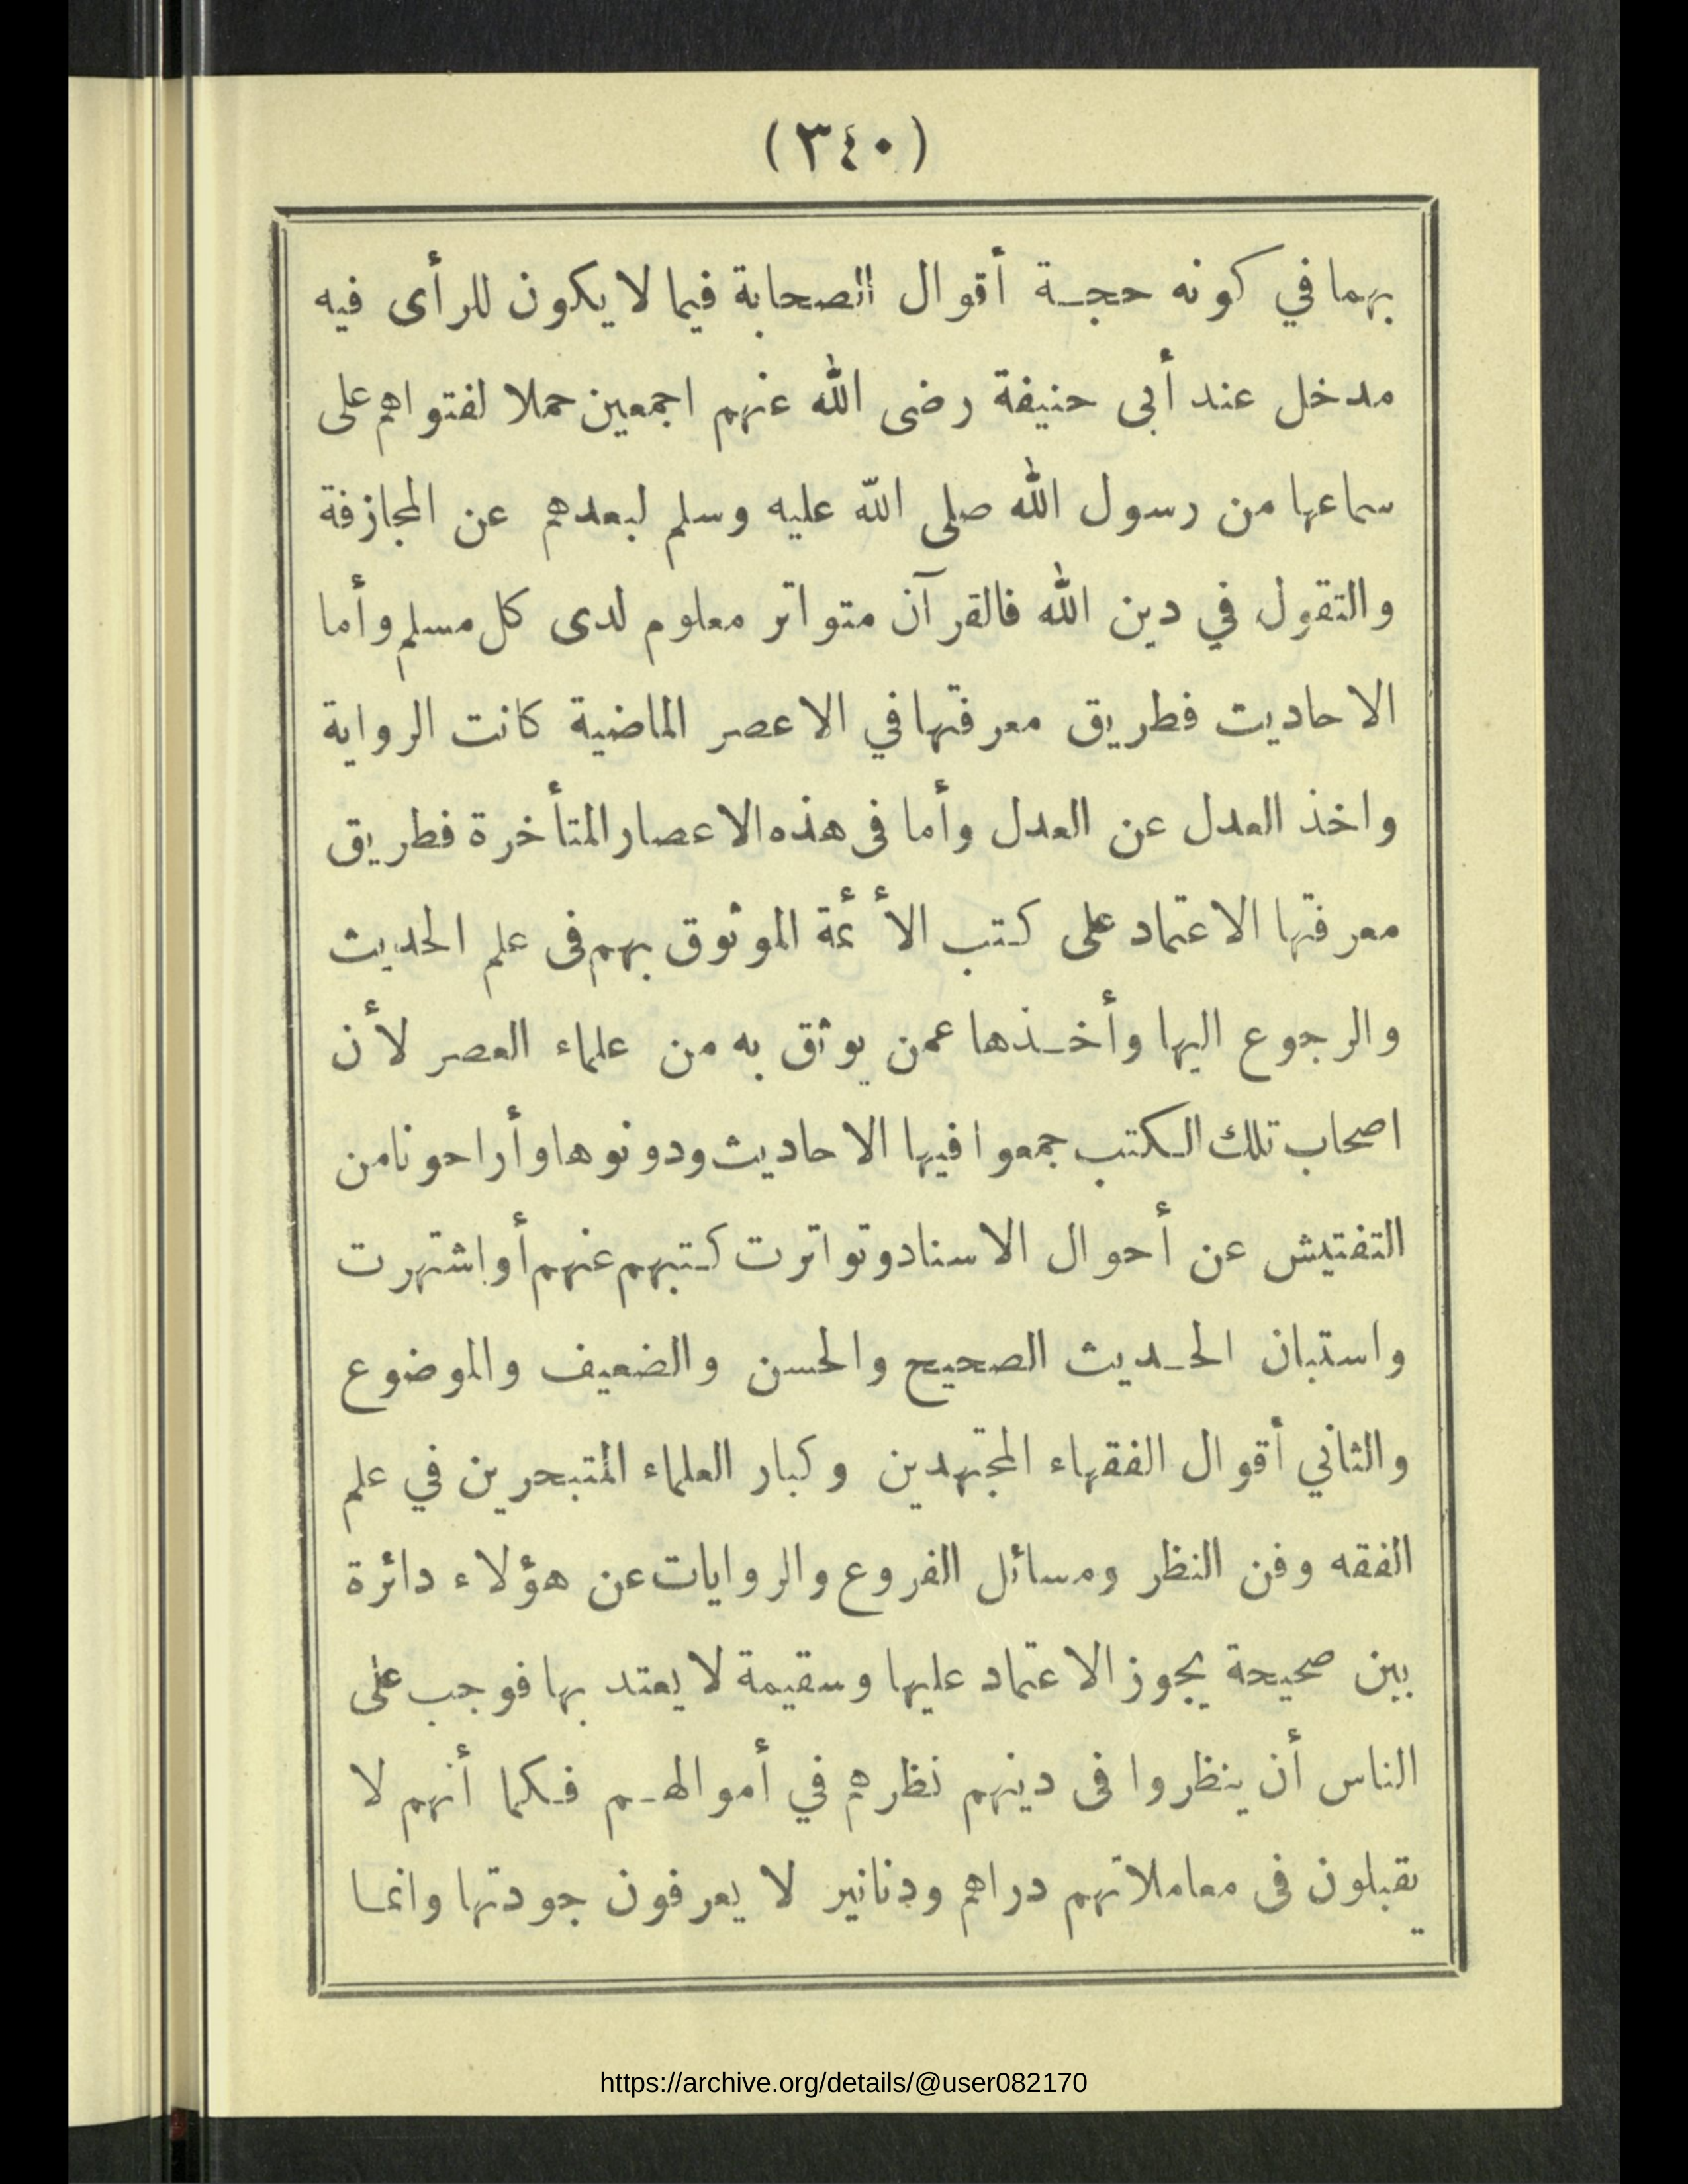 (٣٤٠)
بهما في كونه حجة أقوال الصحابة فيما لا يكون للرأى فيه
مدخل عند أبى حنيفة رضى الله عنهم اجمعين حملا لفتواهم على
سماعها من رسول الله صلى الله عليه وسلم لبعدهم عن المجازفة
والتقول في دين الله فالقرآن متواتر معلوم لدى كل مسلم وأما
الاحاديث فطريق معرفتها في الاعصر الماضية كانت الرواية
واخذ العدل عن العدل وأما فى هذه الاعصار المتأخرة فطريق
معرفتها الاعتماد على كتب الأئمة الموثوق بهم فى علم الحديث
والرجوع اليها وأخذها عمن يوثق به من علماء العصر لأن
اصحاب تلك الكتب جمعوا فيها الاحاديث ودونوها وأراحونا من
التفتيش عن أحوال الاسناد وتواترت كتبهم عنهم أو اشتهرت
واستبان الحديث الصحيح والحسن والضعيف والموضوع
والثاني أقوال الفقهاء المجتهدين وكبار العلماء المتبحرين في علم
الفقه وفن النظر ومسائل الفروع والروايات عن هؤلاء دائرة
بين صحيحة يجوز الاعتماد عليها وسقيمة لا يعتد بها فوجب على
الناس أن ينظروا فى دينهم نظرهم في أموالهم فكما أنهم لا
يقبلون فى معاملاتهم دراهم ودنانير لا يعرفون جودتها وانما
https://archive.org/details/@user082170